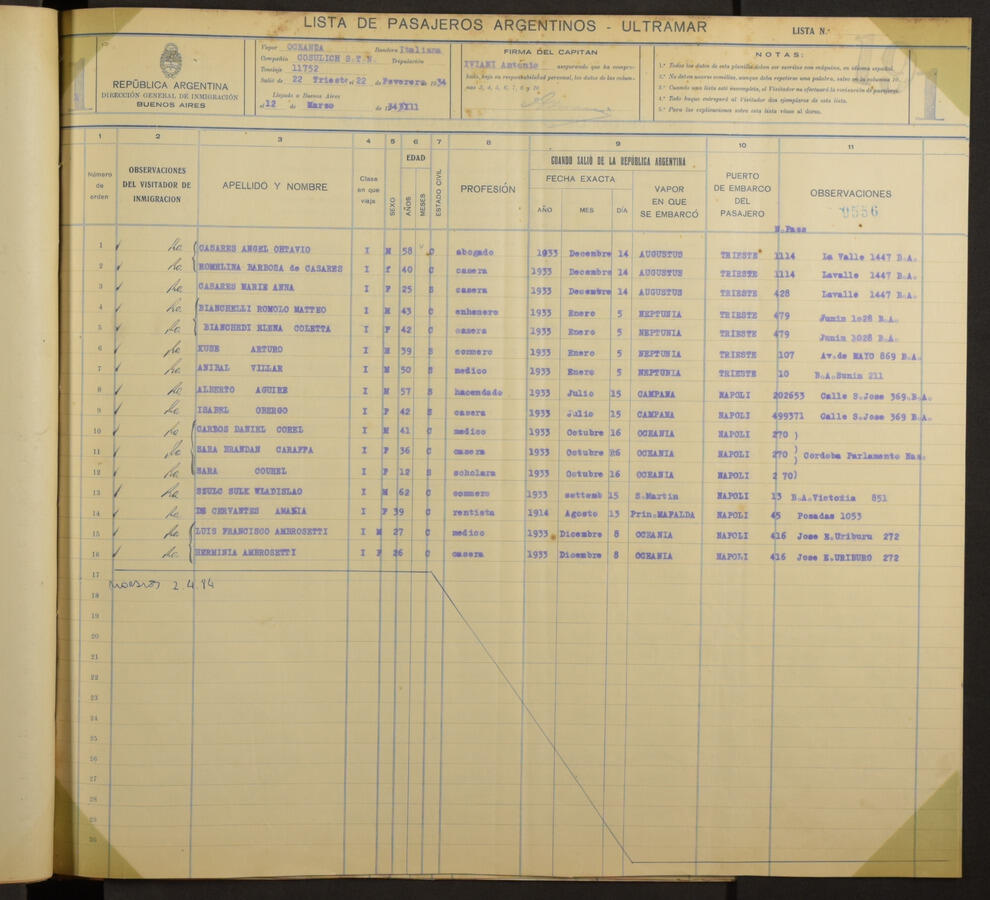 LISTA DE PASAJEROS ARGENTINOS - ULTRAMAR
LISTA N.º
REPÚBLICA ARGENTINA
DIRECCIÓN GENERAL DE INMIGRACIÓN
BUENOS AIRES
Vapor OCEANIA Bandera Italiana
Compañía COSULICH S.T.N. Tripulación
Tonelaje 11752
Salió de 22 Trieste el 22 de Feverero 1934
Llegado a Buenos Aires
el 12 de Marzo de 1934 XIII
FIRMA DEL CAPITAN
IVIANI Antonio asegurando que ha compro-
bado, bajo su responsabilidad personal, los datos de las colum-
nas 3, 4, 5, 6, 7, 8 y 10.
NOTAS:
1.ª Todos los datos de esta planilla deben ser escritos con máquina, en idioma español.
2.ª No deben usarse comillas, aunque deba repetirse una palabra, salvo en la columna 10.
3.ª Cuando una lista esté incompleta, el Visitador no efectuará la revisación de pasajeros.
4.ª Todo buque entregará al Visitador dos ejemplares de esta lista.
5.ª Para las explicaciones sobre esta lista véase al dorso.
1
1 2 3 4 5 6 7 8 9 10 11
Número de orden
OBSERVACIONES DEL VISITADOR DE INMIGRACION
APELLIDO Y NOMBRE
Clase en que viaja
SEXO
EDAD
AÑOS
MESES
ESTADO CIVIL
PROFESIÓN
CUANDO SALIÓ DE LA REPÚBLICA ARGENTINA
FECHA EXACTA
AÑO MES DÍA
VAPOR EN QUE SE EMBARCÓ
PUERTO DE EMBARCO DEL PASAJERO
OBSERVACIONES
0556
N.Pass
1 CASARES ANGEL OHTAVIO I M 58 C abogado 1933 Decembre 14 AUGUSTUS TRIESTE 1114 La Valle 1447 B.A.
2 ROMELINA BARBOSA de CASARES I f 40 C casera 1933 Decembre 14 AUGUSTUS TRIESTE 1114 Lavalle 1447 B.A.
3 CASARES MARIE ANNA I F 25 S casera 1933 Decembre 14 AUGUSTUS TRIESTE 428 Lavalle 1447 B.A.
4 BIANCHELLI ROMOLO MATTEO I M 43 C 1933 Enero 5 NEPTUNIA TRIESTE 479 Junin 1028 B.A.
5 BIANCHEDI ELENA COLETTA I F 42 C casera 1933 Enero 5 NEPTUNIA TRIESTE 479 Junin 1028 B.A.
6 KUSE ARTURO I M 39 S commero 1933 Enero 5 NEPTUNIA TRIESTE 107 Av.de MAYO 869 B.A.
7 ANIBAL VILLAR I M 50 S medico 1933 Enero 5 NEPTUNIA TRIESTE 10 B.A.Sunin 211
8 ALBERTO AGUIRE I M 57 S hacendado 1933 Julio 15 CAMPANA NAPOLI 202653 Calle S.Jose 369.B.A.
9 ISABEL OBERGO I F 42 S casera 1933 Julio 15 CAMPANA NAPOLI 499371 Calle S.Jose 369 B.A.
10 CARBOS DANIEL COREL I M 41 C medico 1933 Octubre 16 OCEANIA NAPOLI 270 )
11 SARA BRANDAN CARAFFA I F 36 C casera 1933 Octubre 16 OCEANIA NAPOLI 270 ) Cordoba Parlamento Nan
12 SARA COUREL I F 12 S scholara 1933 Octubre 16 OCEANIA NAPOLI 2 70)
13 SZULC SULK WLADISLAO I M 62 C commero 1933 settemb 15 S.Martin NAPOLI 13 B.A.Victozia 851
14 DE CERVANTES AMALIA I F 39 C rentista 1914 Agosto 13 Prin.MAFALDA NAPOLI 45 Posadas 1053
15 LUIS FRANCISCO AMBROSETTI I M 27 C medico 1933 Dicembre 8 OCEANIA NAPOLI 416 Jose E.Uriburu 272
16 HERMINIA AMBROSETTI I F 26 C casera 1933 Dicembre 8 OCEANIA NAPOLI 416 Jose E.URIBURO 272
17
18 2.4.94
19
20
21
22
23
24
25
26
27
28
29
30